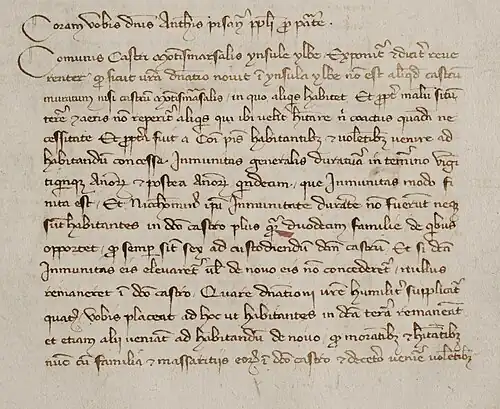 Coram vobis dnis Anthis pisani ppli pro pte
Comunis Castri Montismarsalis ynsule ylbe. Exponit & dicit reve
renter, q sicut vra dnatio novit i ynsula ylbe no est aliqd castru
muratum nisi castru Montismarsalis, in quo aliqs habitet. Et ppt malu situ
tere & aeris no reperit aliqs qui ibi velit hitare n coactus quadi ne
cessitate. Et propterea fuit a Coi pis habitantib & voletib venire ad
habitandu concessa Inmunitas generalis duratura in termino vigi
tiqnque Anor & postea Anor qndecim, que Inmunitas modo fi
nita est, Et Nichominus ipa Inmunitate durate no fuerut neq
sut habitantes in dco castro plus qua duodecim familie de qbus
opportet, q semper sint sex ad custodiendu dcm castru Et si dca
Inmunitas eis elevaret vel de novo eis no concederet, nullus
remaneret i dco castro. Quare dnationi vre humilit supplicat
quat vobis placeat id hoc ut habitantes in dca tera remaneat
et etiam alii veniat ad habitandu de novo, q moratib & hitatib
nuc cu familia & massaritiis eor i dco castro & deceto venire voletib